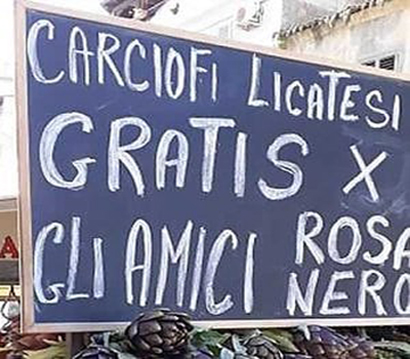 CARCIOFI LICATESI
GRATIS X
GLI AMICI ROSA
NERO